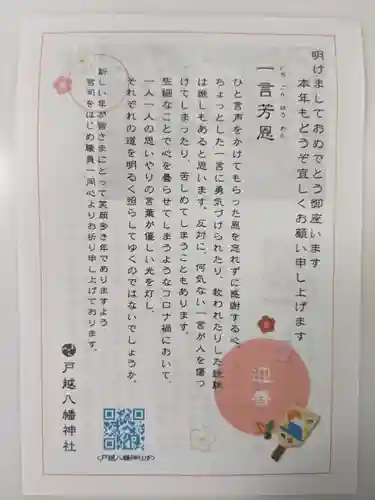 明けましておめでとう御座います
本年もどうぞ宜しくお願い申し上げます
いち ごん ほう おん
一言芳恩
ひと言声をかけてもらった恩を忘れずに感謝する心。
ちょっとした一言に勇気づけられたり、救われたりした経験
は誰しもあると思います。反対に、何気ない一言が人を傷つ
けてしまったり、苦しめてしまうこともあります。
些細なことで心を曇らせてしまうようなコロナ禍において、
一人一人の思いやりの言葉が優しい光を灯し、
それぞれの道を明るく照らしてゆくのではないでしょうか。
新しい年が皆さまにとって笑顔多き年でありますよう
宮司をはじめ職員一同心よりお祈り申し上げております。
戸越八幡神社
迎春